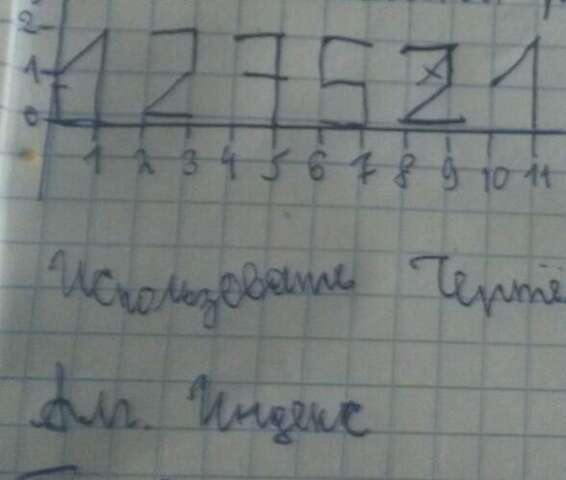 2
1
0
1 2 7 5 2 1
1 2 3 4 5 6 7 8 9 10 11
Использовать Чертё
Алг. Индекс